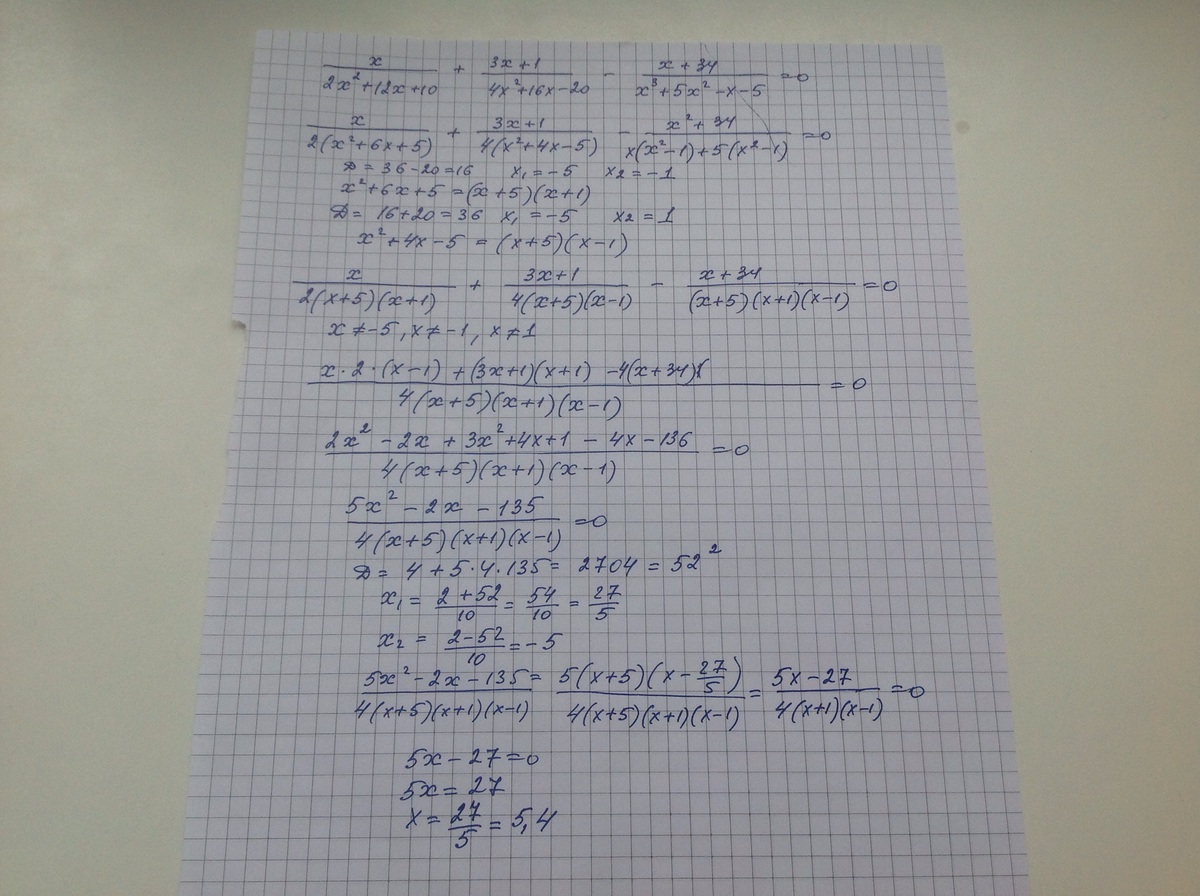 x/(2x²+12x+10) + (3x+1)/(4x²+16x-20) - (x+34)/(x³+5x²-x-5) =0
x/(2(x²+6x+5)) + (3x+1)/(4(x²+4x-5)) - (x²+34)/(x(x²-1)+5(x²-1)) =0
D = 36-20=16 x₁=-5 x₂=-1
x²+6x+5 =(x+5)(x+1)
D= 16+20=36 x₁=-5 x₂=1
x²+4x-5 = (x+5)(x-1)
x/(2(x+5)(x+1)) + (3x+1)/(4(x+5)(x-1)) - (x+34)/((x+5)(x+1)(x-1)) =0
x≠-5, x≠-1, x≠1
(x·2·(x-1) +(3x+1)(x+1) -4(x+34))/(4(x+5)(x+1)(x-1)) =0
(2x²-2x+3x²+4x+1-4x-136)/(4(x+5)(x+1)(x-1)) =0
(5x²-2x-135)/(4(x+5)(x+1)(x-1)) =0
D= 4+5·4·135= 2704 = 52²
x₁ = (2+52)/10 = 54/10 = 27/5
x₂ = (2-52)/10 =-5
(5x²-2x-135)/(4(x+5)(x+1)(x-1)) = (5(x+5)(x-27/5))/(4(x+5)(x+1)(x-1)) = (5x-27)/(4(x+1)(x-1)) =0
5x-27=0
5x=27
x=27/5=5,4